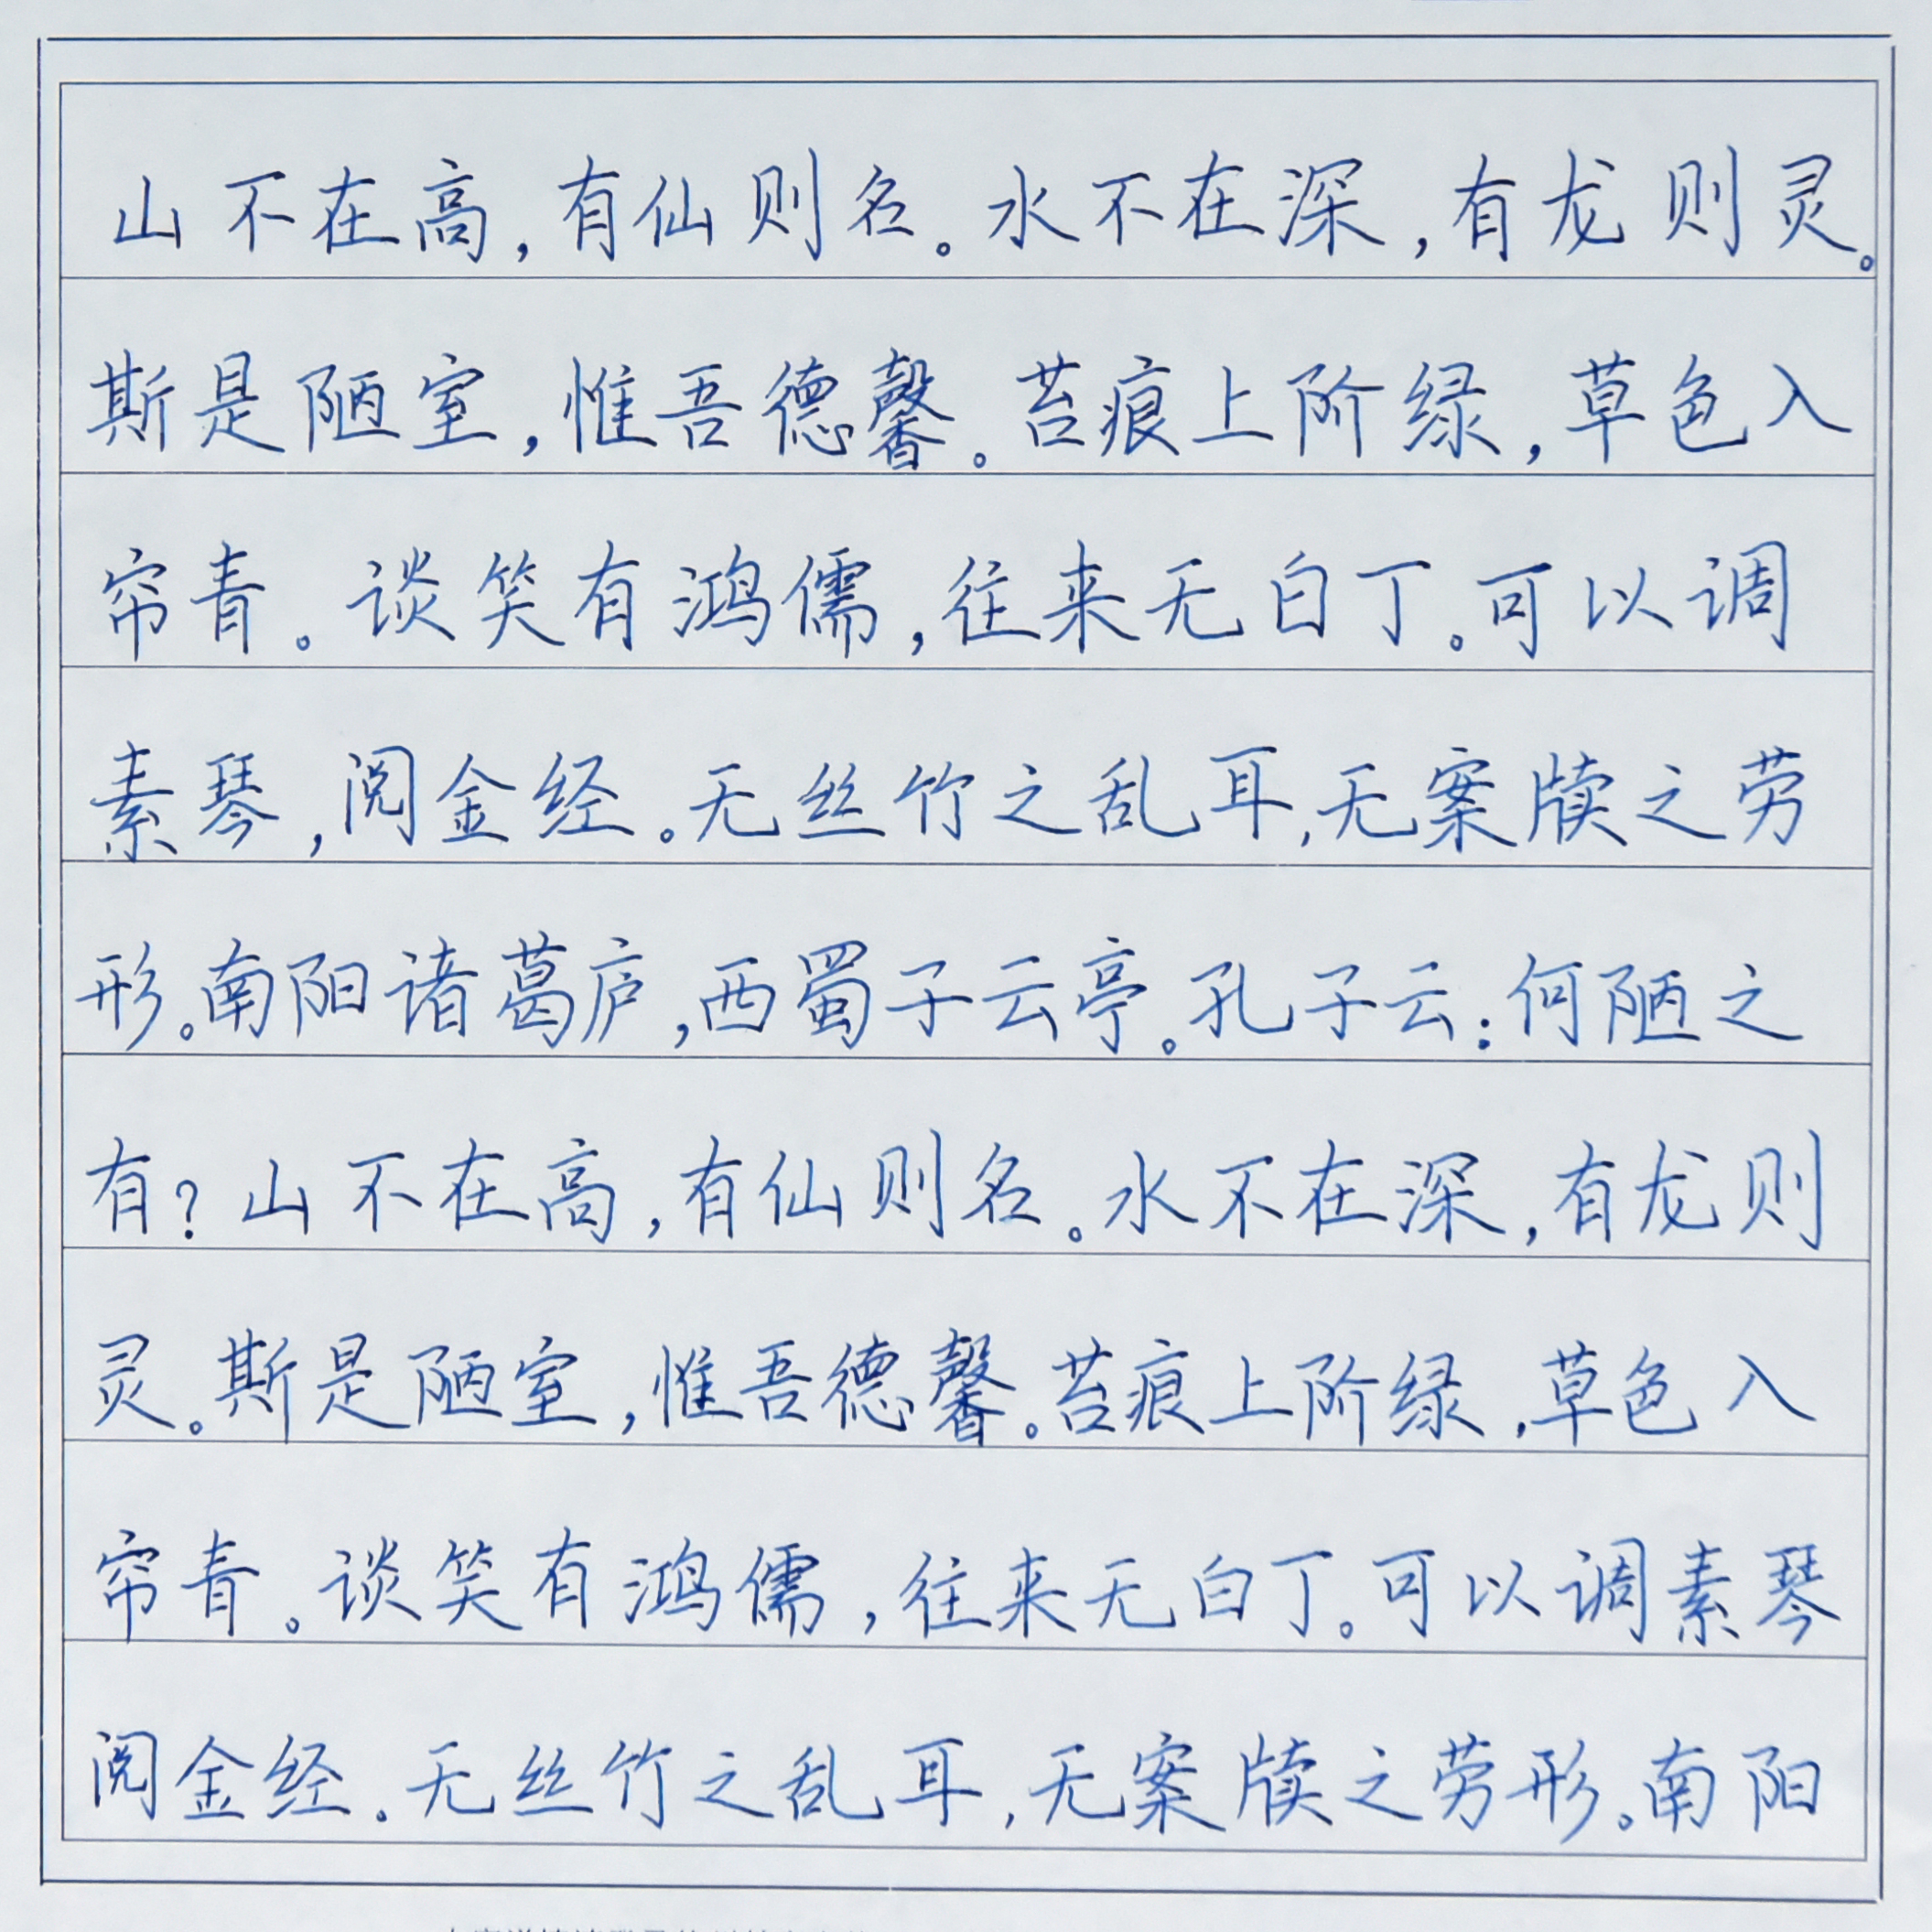 山不在高,有仙则名。水不在深,有龙则灵。
斯是陋室,惟吾德馨。苔痕上阶绿,草色入
帘青。谈笑有鸿儒,往来无白丁。可以调
素琴,阅金经。无丝竹之乱耳,无案牍之劳
形。南阳诸葛庐,西蜀子云亭。孔子云:何陋之
有?山不在高,有仙则名。水不在深,有龙则
灵。斯是陋室,惟吾德馨。苔痕上阶绿,草色入
帘青。谈笑有鸿儒,往来无白丁。可以调素琴
阅金经。无丝竹之乱耳,无案牍之劳形。南阳